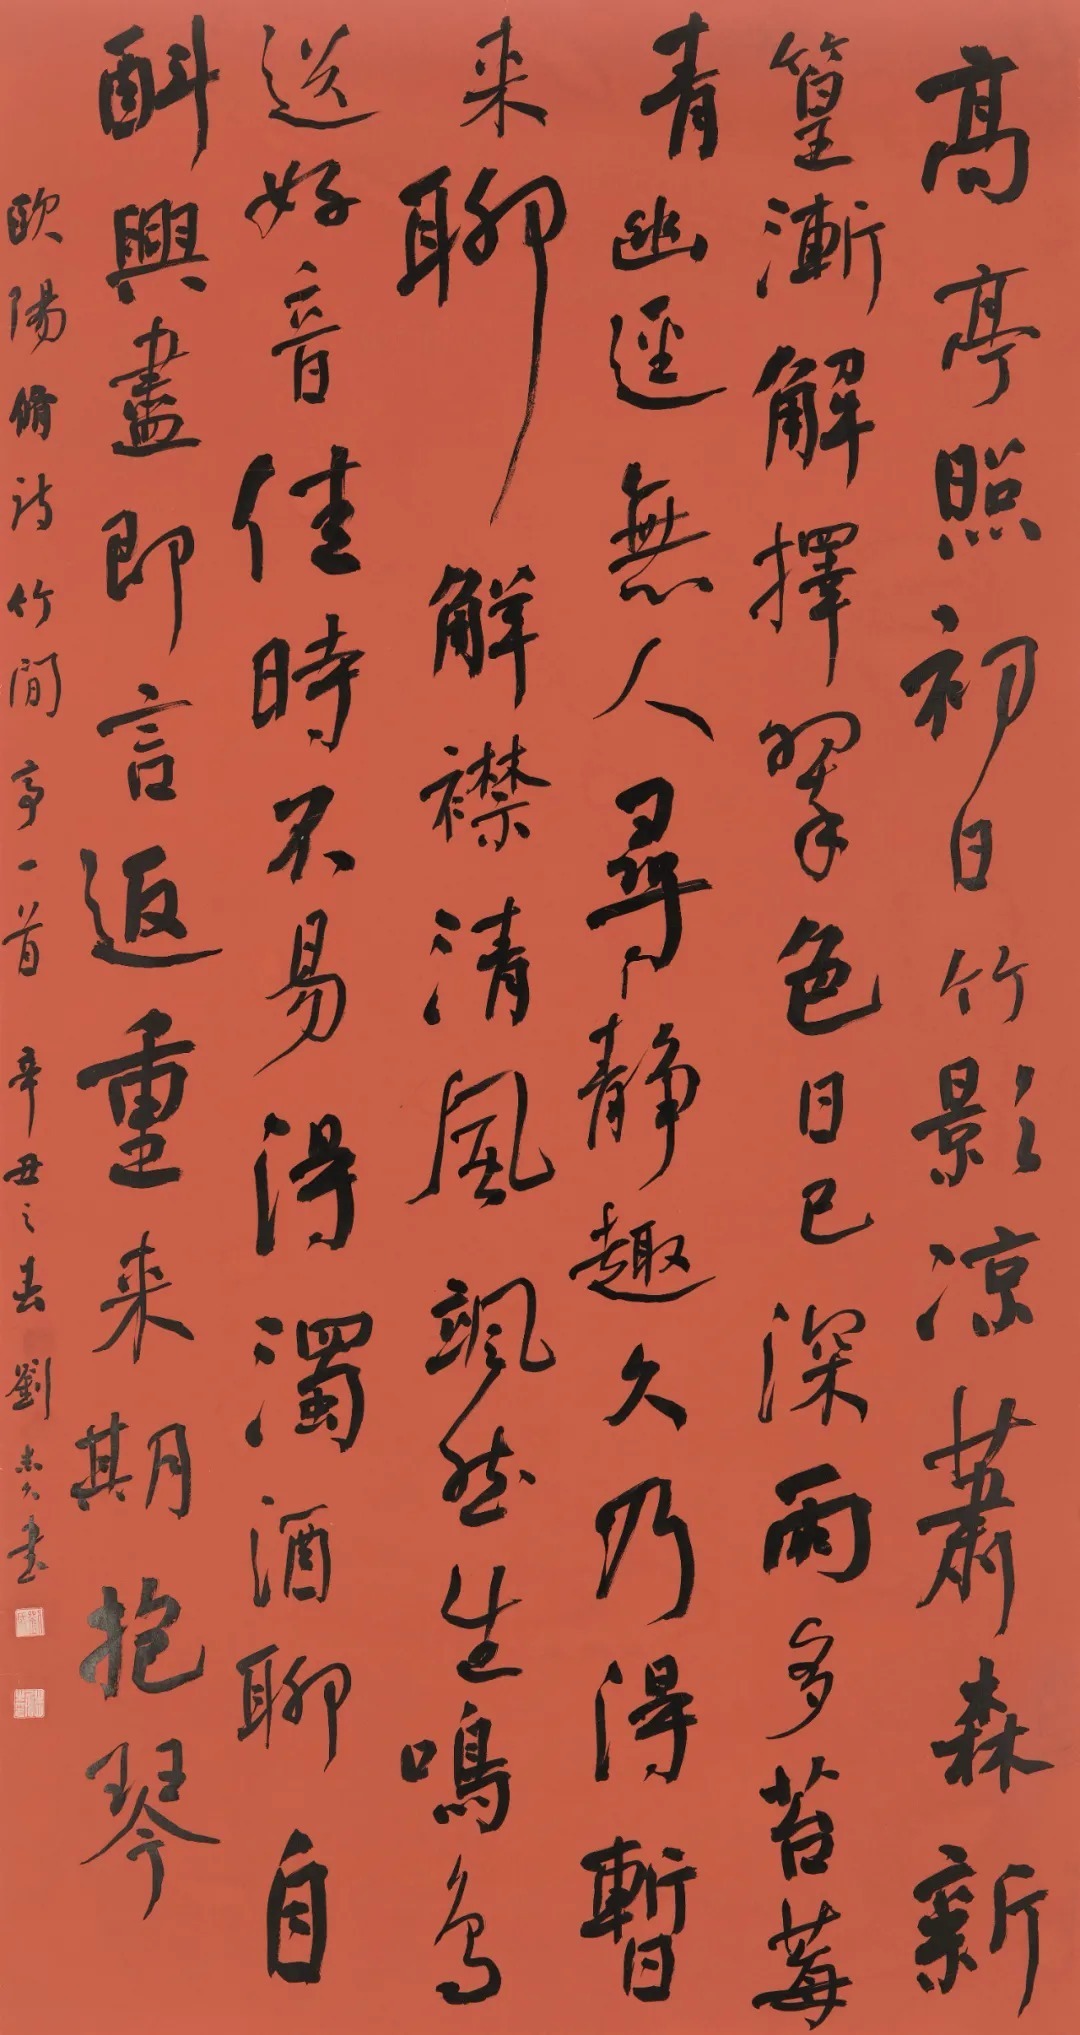 高亭照初日竹影凉萧森新
篁漸解擇翠色日已深雨多苔莓
青幽逕無人尋静趣久乃得暫
来聊解襟清風颯然生鳴鸟
送好音佳時不易得濁酒聊自
酙興盡即言返重来期抱琴
欧陽脩詩竹間亭一首 辛丑之春 劉 書